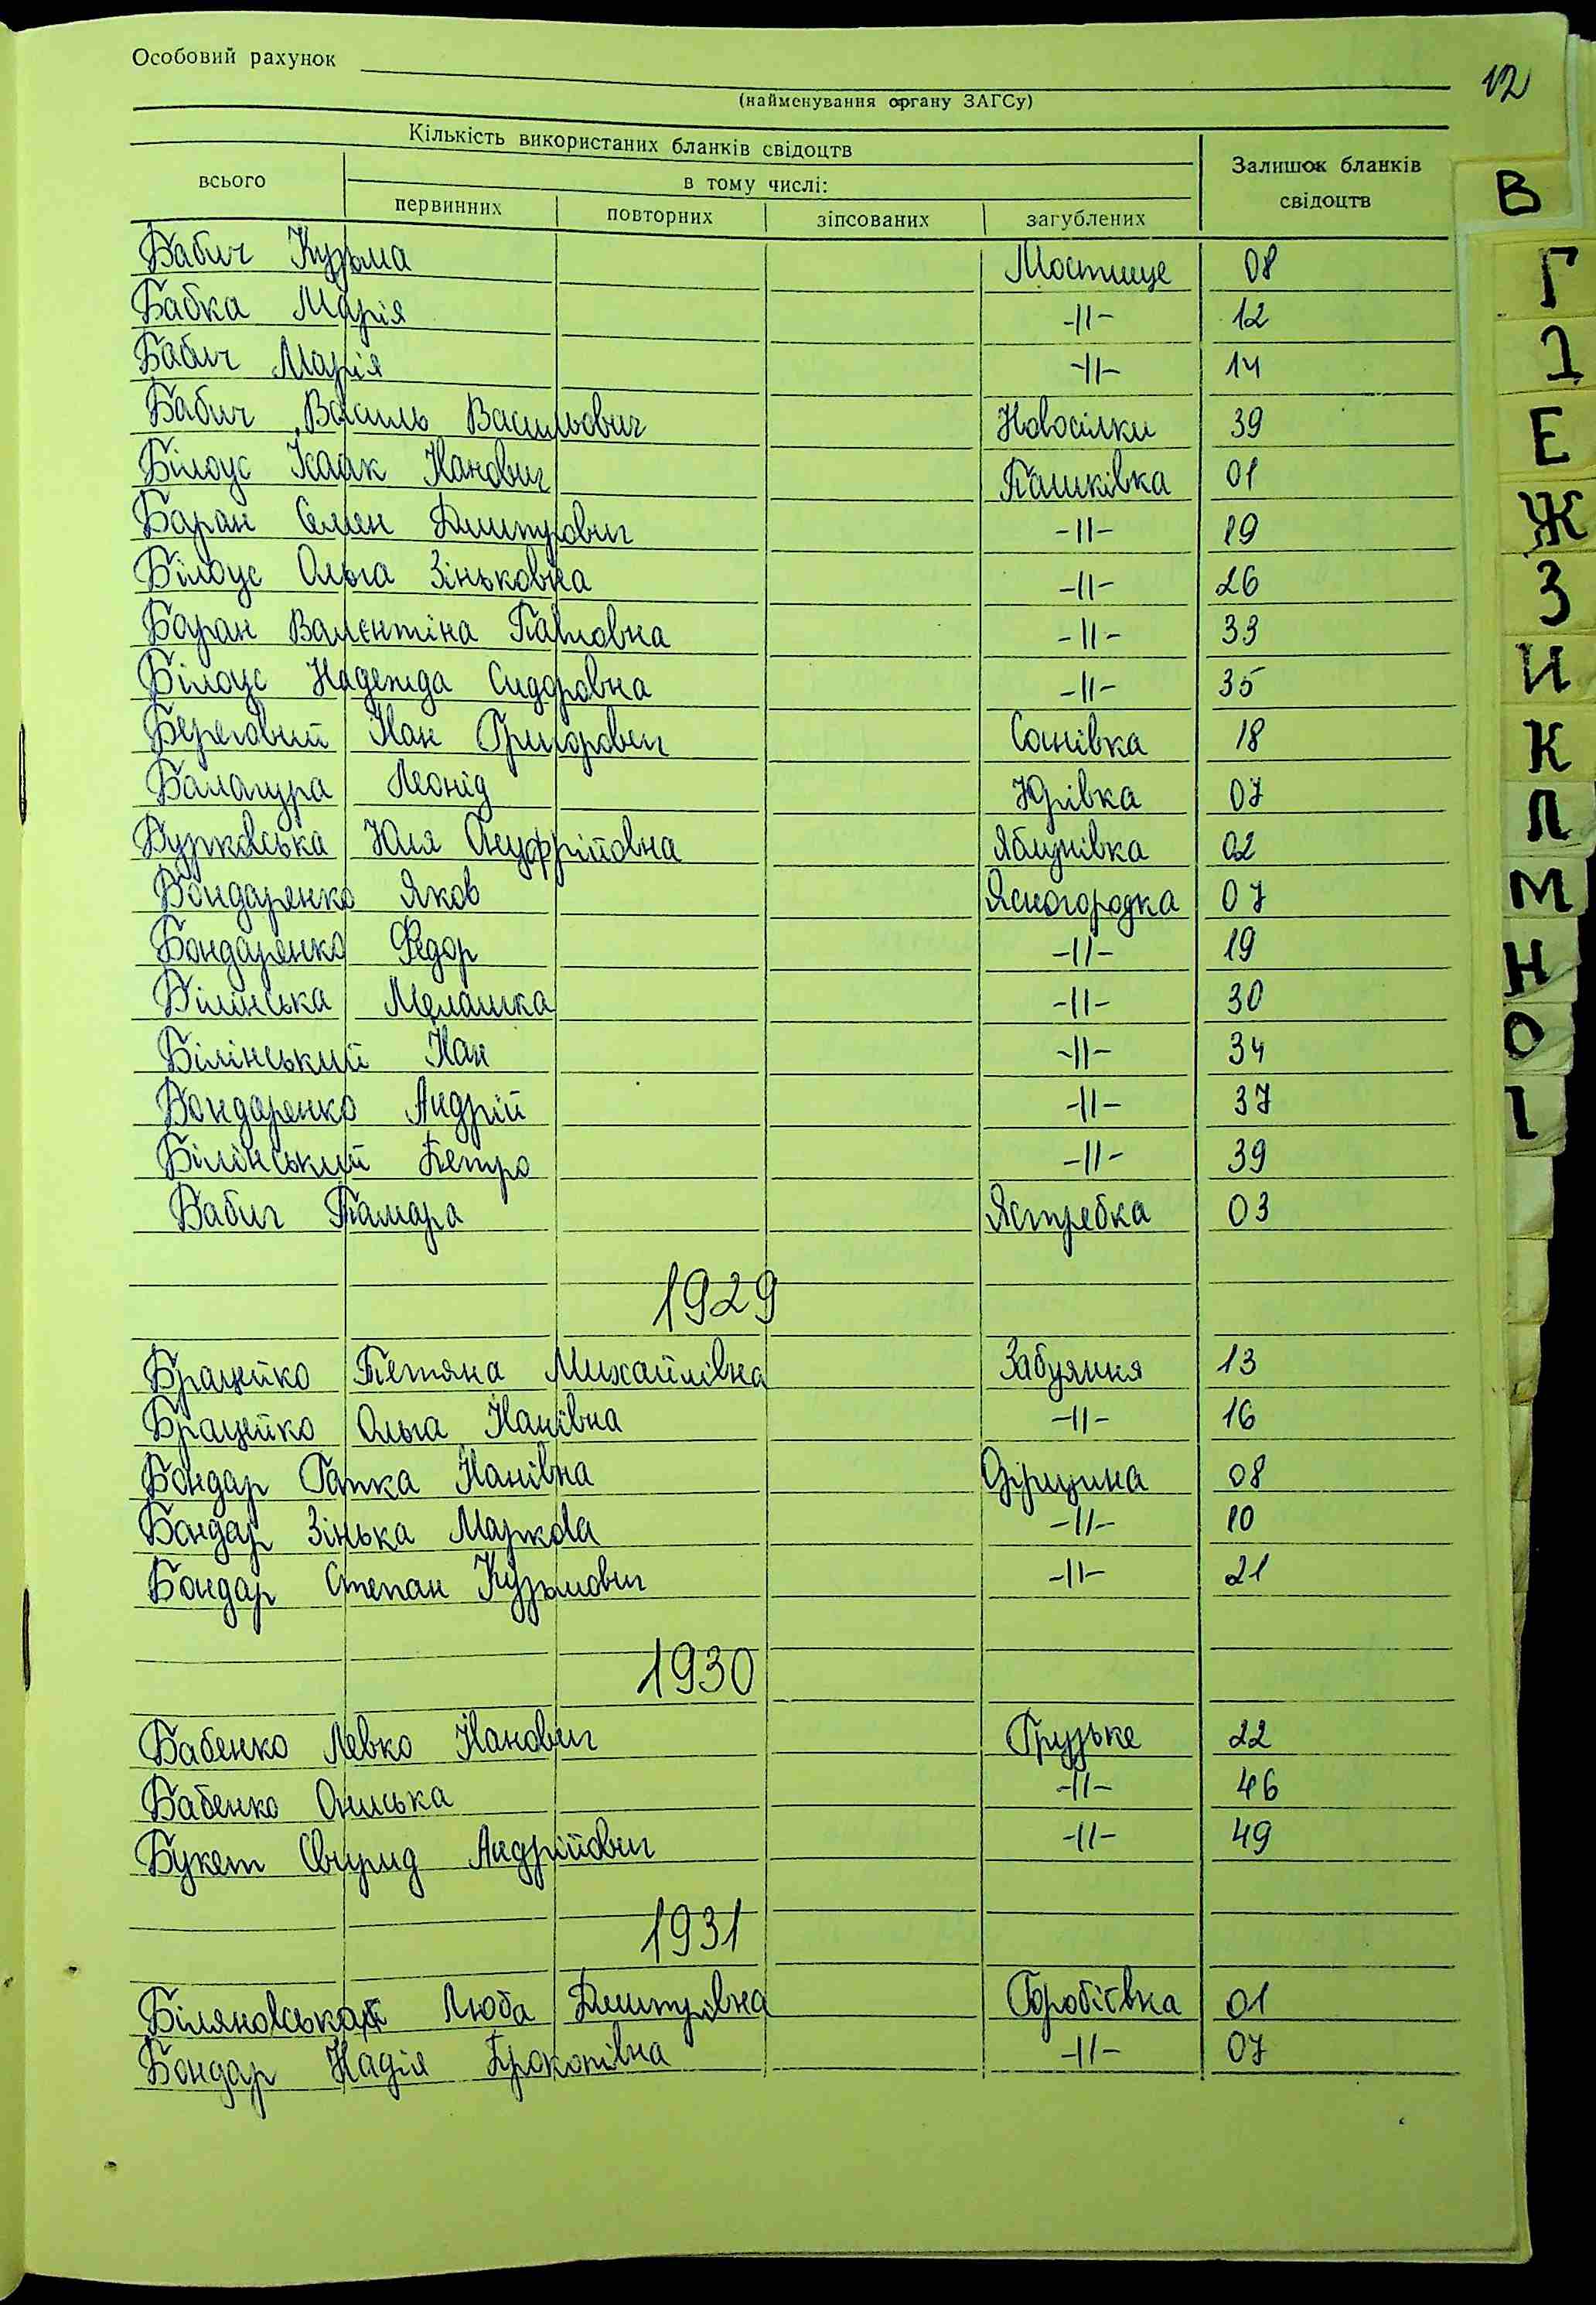 Особовий рахунок
(найменування органу ЗАГСу)
12
Кількість використаних бланків свідоцтв
Залишок бланків свідоцтв
всього
в тому числі:
первинних повторних зіпсованих загублених
Бабич Кузьма Мостище 08
Бабка Марія -||- 12
Бабич Марія -||- 14
Бабич Василь Васильович Новосілки 39
Білоус Ісаак Іванович Пашківка 01
Баран Семен Дмитрович -||- 19
Білоус Ольга Зіньковна -||- 26
Баран Валєнтіна Павловна -||- 33
Білоус Надежда Сидоровна -||- 35
Береговий Іван Григорович Соснівка 18
Балагура Леонід Юрівка 07
Бурковська Юля Онуфрійовна Яблунівка 02
Бондаренко Яков Ясногородка 07
Бондаренко Федор -||- 19
Білінська Мелашка -||- 30
Білінський Іван -||- 34
Бондаренко Андрій -||- 37
Білінський Петро -||- 39
Бабич Тамара Ястребка 03
1929
Брацейко Тетяна Михайлівна Забуяння 13
Брацейко Ольга Іванівна -||- 16
Бондар Гапка Іванівна 08
Бондар Зінька Маркова -||- 10
Бондар Степан Кузьмович -||- 21
1930
Бабенко Левко Іванович Грузьке 22
Бабенко Ониська -||- 46
Букет Свирид Андрійович -||- 49
1931
Біляновська Люба Дмитрівна Горобіївка 01
Бондар Надія Прокопівна -||- 07
В
Г
Д
Е
Ж
З
И
К
Л
М
Н
О